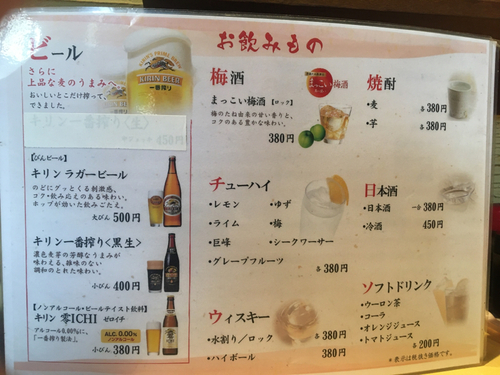 お飲みもの
ビール
さらに
上品な麦のうまみへ
おいしいとこだけ搾って、
できました。
KIRIN BEER
一番搾り
キリン一番搾り〈生〉
450円
【びんビール】
キリン ラガービール
のどにグッとくる刺激感、
コク・飲み応えのある味わい。
ホップが効いた飲みごたえ。
大びん 500円
キリン一番搾り〈黒生〉
濃色麦芽の芳醇なうまみが
味わえる、雑味のない
調和のとれた味わい。
小びん 400円
【ノンアルコール・ビールテイスト飲料】
キリン 零ICHI ゼロイチ
アルコール0.00%に、
「一番搾り製法」。
ALC. 0.00%
ノンアルコール
小びん 380円
梅酒
まっこい梅酒【ロック】
梅のたね由来の甘い香りと、
コクのある豊かな味わい。
380円
まっこい梅酒
チューハイ
・レモン ・ゆず
・ライム ・梅
・巨峰 ・シークワーサー
・グレープフルーツ
各380円
ウィスキー
・水割り／ロック
・ハイボール 各380円
焼酎
・麦 各380円
・芋 各380円
日本酒
・日本酒 一合380円
・冷酒 450円
ソフトドリンク
・ウーロン茶
・コーラ
・オレンジジュース
・トマトジュース
各200円
*表示は税抜き価格です。